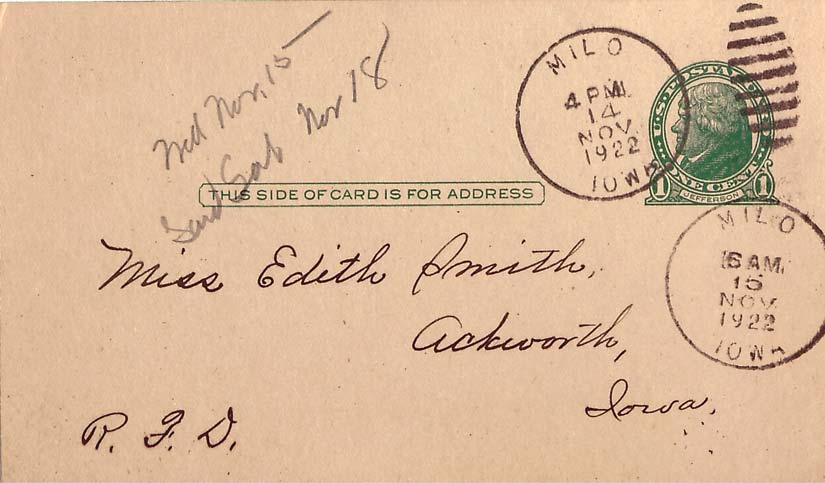 Wed Nov. 15
Send Sat Nov 18
MILO
4 PM
14
NOV
1922
IOWA
U.S. POSTAL CARD
ONE CENT
1 1
JEFFERSON
THIS SIDE OF CARD IS FOR ADDRESS
MILO
6 AM
15
NOV
1922
IOWA
Miss Edith Smith,
Ackworth,
Iowa.
R. F. D.